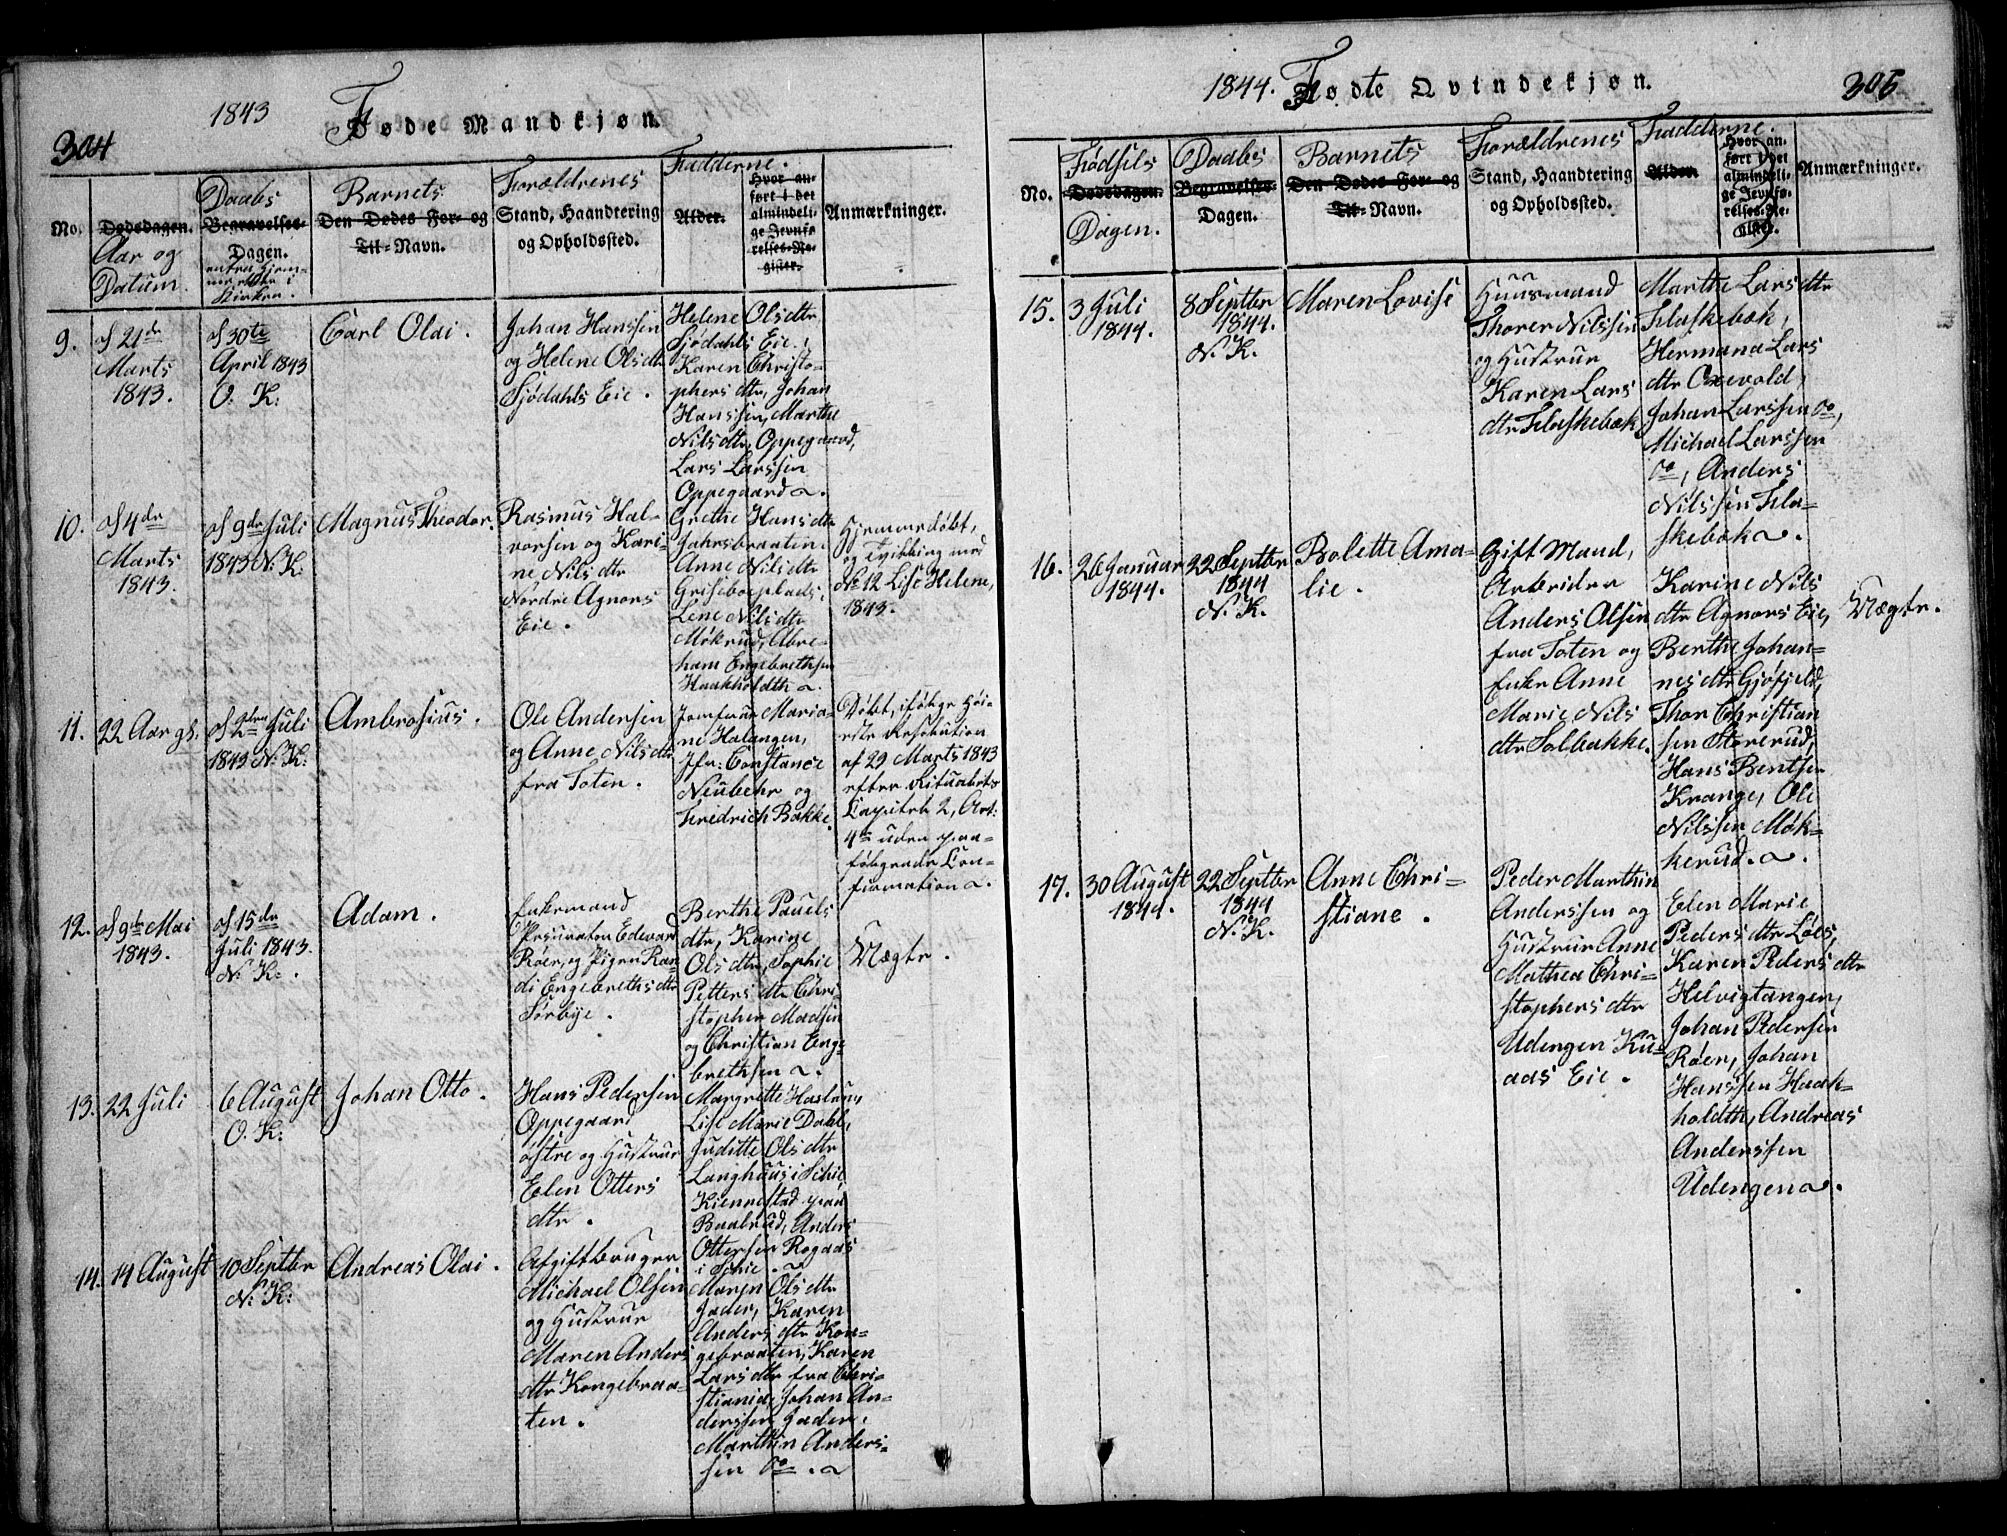 304
1843
Føde Mandkjøn.
No.
Dødsdagen.
Aar og
Datum.
Daabs
Begravelses-
Dagen.
enten hjem-
me eller i
Kirken.
Barnets
Den Dødes For- og
Til-Navn.
Forældrenes
Stand, Haandtering
og Opholdssted.
Fadderne.
Alder.
Hvor an-
ført i det
almindeli-
ge Jevnfø-
relses-Re-
gister.
Anmærkninger.
9.
d 21de
Marts
1843.
d 30te
April 1843
O. K:
Carl Olai.
Johan Hanssen
og Helene Olsdtr
Sjødahls Eie.
Helene Olsdtr
Sjødahls Eie,
Karen Christo-
phersdtr, Johan
Hanssen, Marthe
Nilsdtr Oppegaard,
Lars Larssen
Oppegaard
10.
d 4de
Marts
1843.
d 9de Juli
1843 N: K:
Magnus Theodor.
Rasmus Hal-
vorsen og Kari-
ne Nilsdtr
Nordre Agnors
Eie.
Grethe Hansdtr
Jahrsbraaten
Anne Nilsdtr
Griseboeplads,
Lene Nilsdtr
Møkrud, Abra-
ham Engebrethsen
Haakholdth
Hjemmedøbt,
og Tvilling med
No 12 Lise Helene,
1843.
11.
22 Aar gl.
d 2den Juli
1843 N: K:
Ambrosius.
Ole Andersen
og Anne Nilsdtr
fra Toten.
Jomfrue Maria-
ne Halangen,
Jfr: Constance
Neubehr og
Fredrich Bakke
Døbt, ifølge Høi-
este Resolution
af 29 Marts 1843
efter Ritualets
Capitel 2, Art:
4de uden paa-
følgende Con-
firmation
12.
d 9de Mai
1843.
d 15de
Juli 1843.
N: K:
Adam.
Enkemand
Procurator Edevard
Röer, og Pigen Ran-
di Engebrethsdtr
Sørbye.
Berthe Pauels
dtr, Karine
Olsdtr, Sophie
Pettersdtr Chri-
stopher Madsen
og Christian Enge-
brethsen
Uægte.
13.
22 Juli
6 August
O. K:
Johan Otto.
Hans Pedersen
Oppegaard
østre og Hustrue
Elen Otters
dtr.
Margrette Haslum,
Lise Marie Dahl,
Juditte Olsdtr
Langhuus i Schie,
Kiennestad paa
Baalrud, Anders
Ottersen Rogaas
i Schie.
14.
14 August
10 Septber
N: K:
Andreas Olai.
Afgiftbruger
Michael Olsen
og Hustrue
Maren Anders
dtr Kongebraa-
ten.
Maren Olsdtr
Jader, Karen
Andersdtr Kon-
gebraaten, Karen
Larsdtr fra Chri-
stiania, Johan An-
derssen Jader,
Marthin Anders-
sen do.
1844.
Fødte Qvindekjøn.
305
No.
Fødsels
Dødsdagen.
Dagen.
Daabs
Begravelses-
Dagen.
Barnets
Den Dødes For- og
Til-Navn.
Forældrenes
Stand, Haandtering
og Opholdssted.
Fadderne.
Alder.
Hvor an-
ført i det
almindeli-
ge Jevnfø-
relses-Re-
gister.
Anmærkninger.
15.
3 Juli
1844.
8 Septber
1844.
N. K.
Maren Lovise
Huusmand
Thorer Nilssen
og Hustrue
Karen Lars
dtr Flaskebæk
Marthe Larsdtr
Flaskebæk,
Hermana Lars
dtr Oxevold,
Johan Larssen do,
Michael Larssen
do, Anders
Nilssen Fla-
skebæk
16.
26 Januar
1844.
22 Septber
1844
N. K.
Bolette Ama-
lie.
Gift Mand,
Arbeider
Anders Olsen
fra Toten og
Enke Anne
Marie Nils
dtr Solbakke.
Karine Nils
dtr Agnors Eie,
Berthe Johan-
nesdtr Gjøfjeld,
Thor Christian
sen Storerud,
Hans Bentsen
Krange, Ole
Nilssen Møk-
kerud.
Uægte.
17.
30 August
1844.
22 Septber
1844
N. K.
Anne Chri-
stiane.
Peder Marthin
Anderssen og
Hustrue Anne
Mathea Chri-
stophersdtr
Udengen Ku-
aas Eie.
Elen Marie
Pedersdtr Löes,
Karen Pedersdtr
Helvigtangen,
Johan Pedersen
Röer, Johan
Hanssen Haak-
holdth, Andreas
Anderssen
Udengen